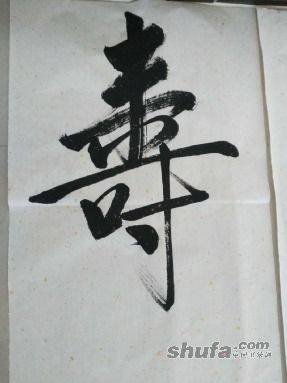 壽
shufa.com